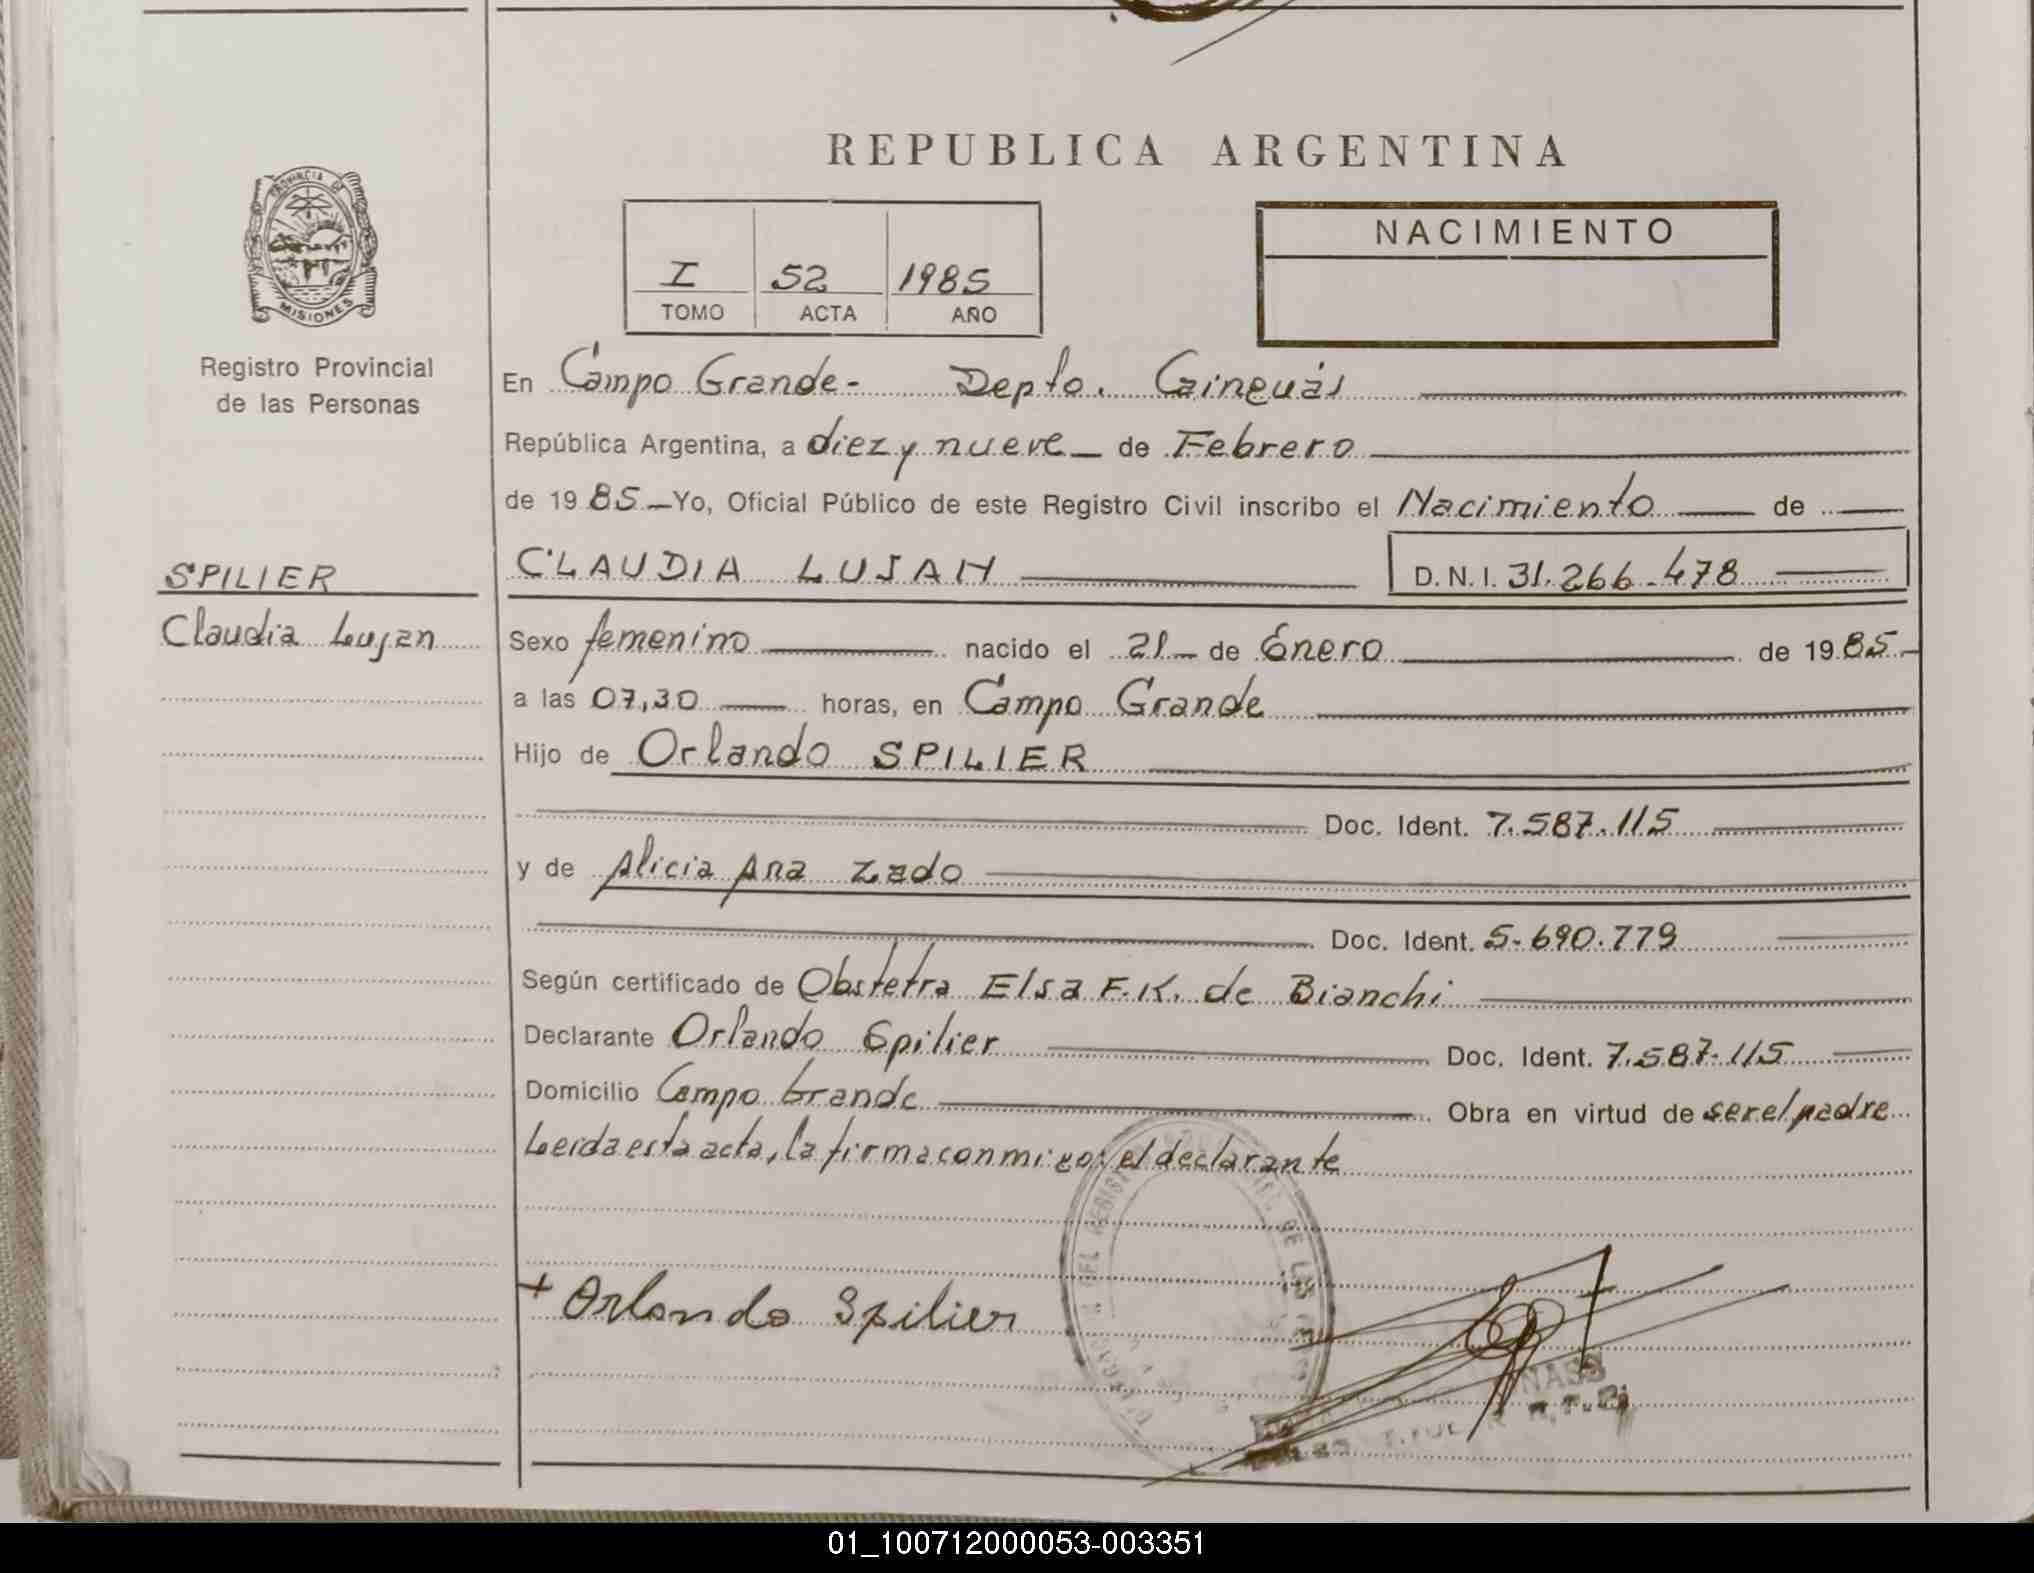 REPUBLICA ARGENTINA
PROVINCIA DE
MISIONES
Registro Provincial
de las Personas
I 52 1985
TOMO ACTA AÑO
NACIMIENTO
En Campo Grande- Depto. Cainguás
República Argentina, a diez y nueve de Febrero
de 1985 Yo, Oficial Público de este Registro Civil inscribo el Nacimiento de
SPILIER
Claudia Lujan
CLAUDIA LUJAN D.N.I. 31.266.478
Sexo femenino nacido el 21 de Enero de 1985
a las 07,30 horas, en Campo Grande
Hijo de Orlando SPILIER
Doc. Ident. 7.587.115
y de Alicia Ana Zado
Doc. Ident. 5.690.779
Según certificado de Obstetra Elsa F.K. de Bianchi
Declarante Orlando Spilier Doc. Ident. 7.587.115
Domicilio Campo Grande Obra en virtud de ser el padre
Leida esta acta, la firma conmigo: el declarante
DEL REGISTRO DE LAS
+ Orlando Spilier
01_100712000053-003351